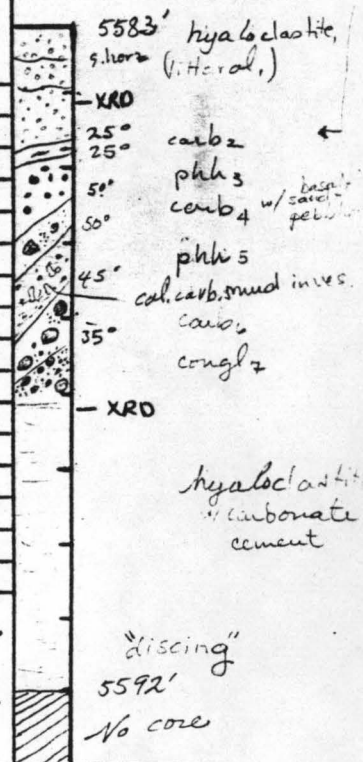 5583' hyaloclastite,
s. horz (littoral,)
XRD
25° carb 2
25°
phh 3
50° carb 4 w/ basalt
sand-
50°
phh 5
45° cal. carb. mud inves.
carb 6
35°
congl 7
XRD
hyaloclastite
w/ carbonate
cement
"discing"
5592'
No core